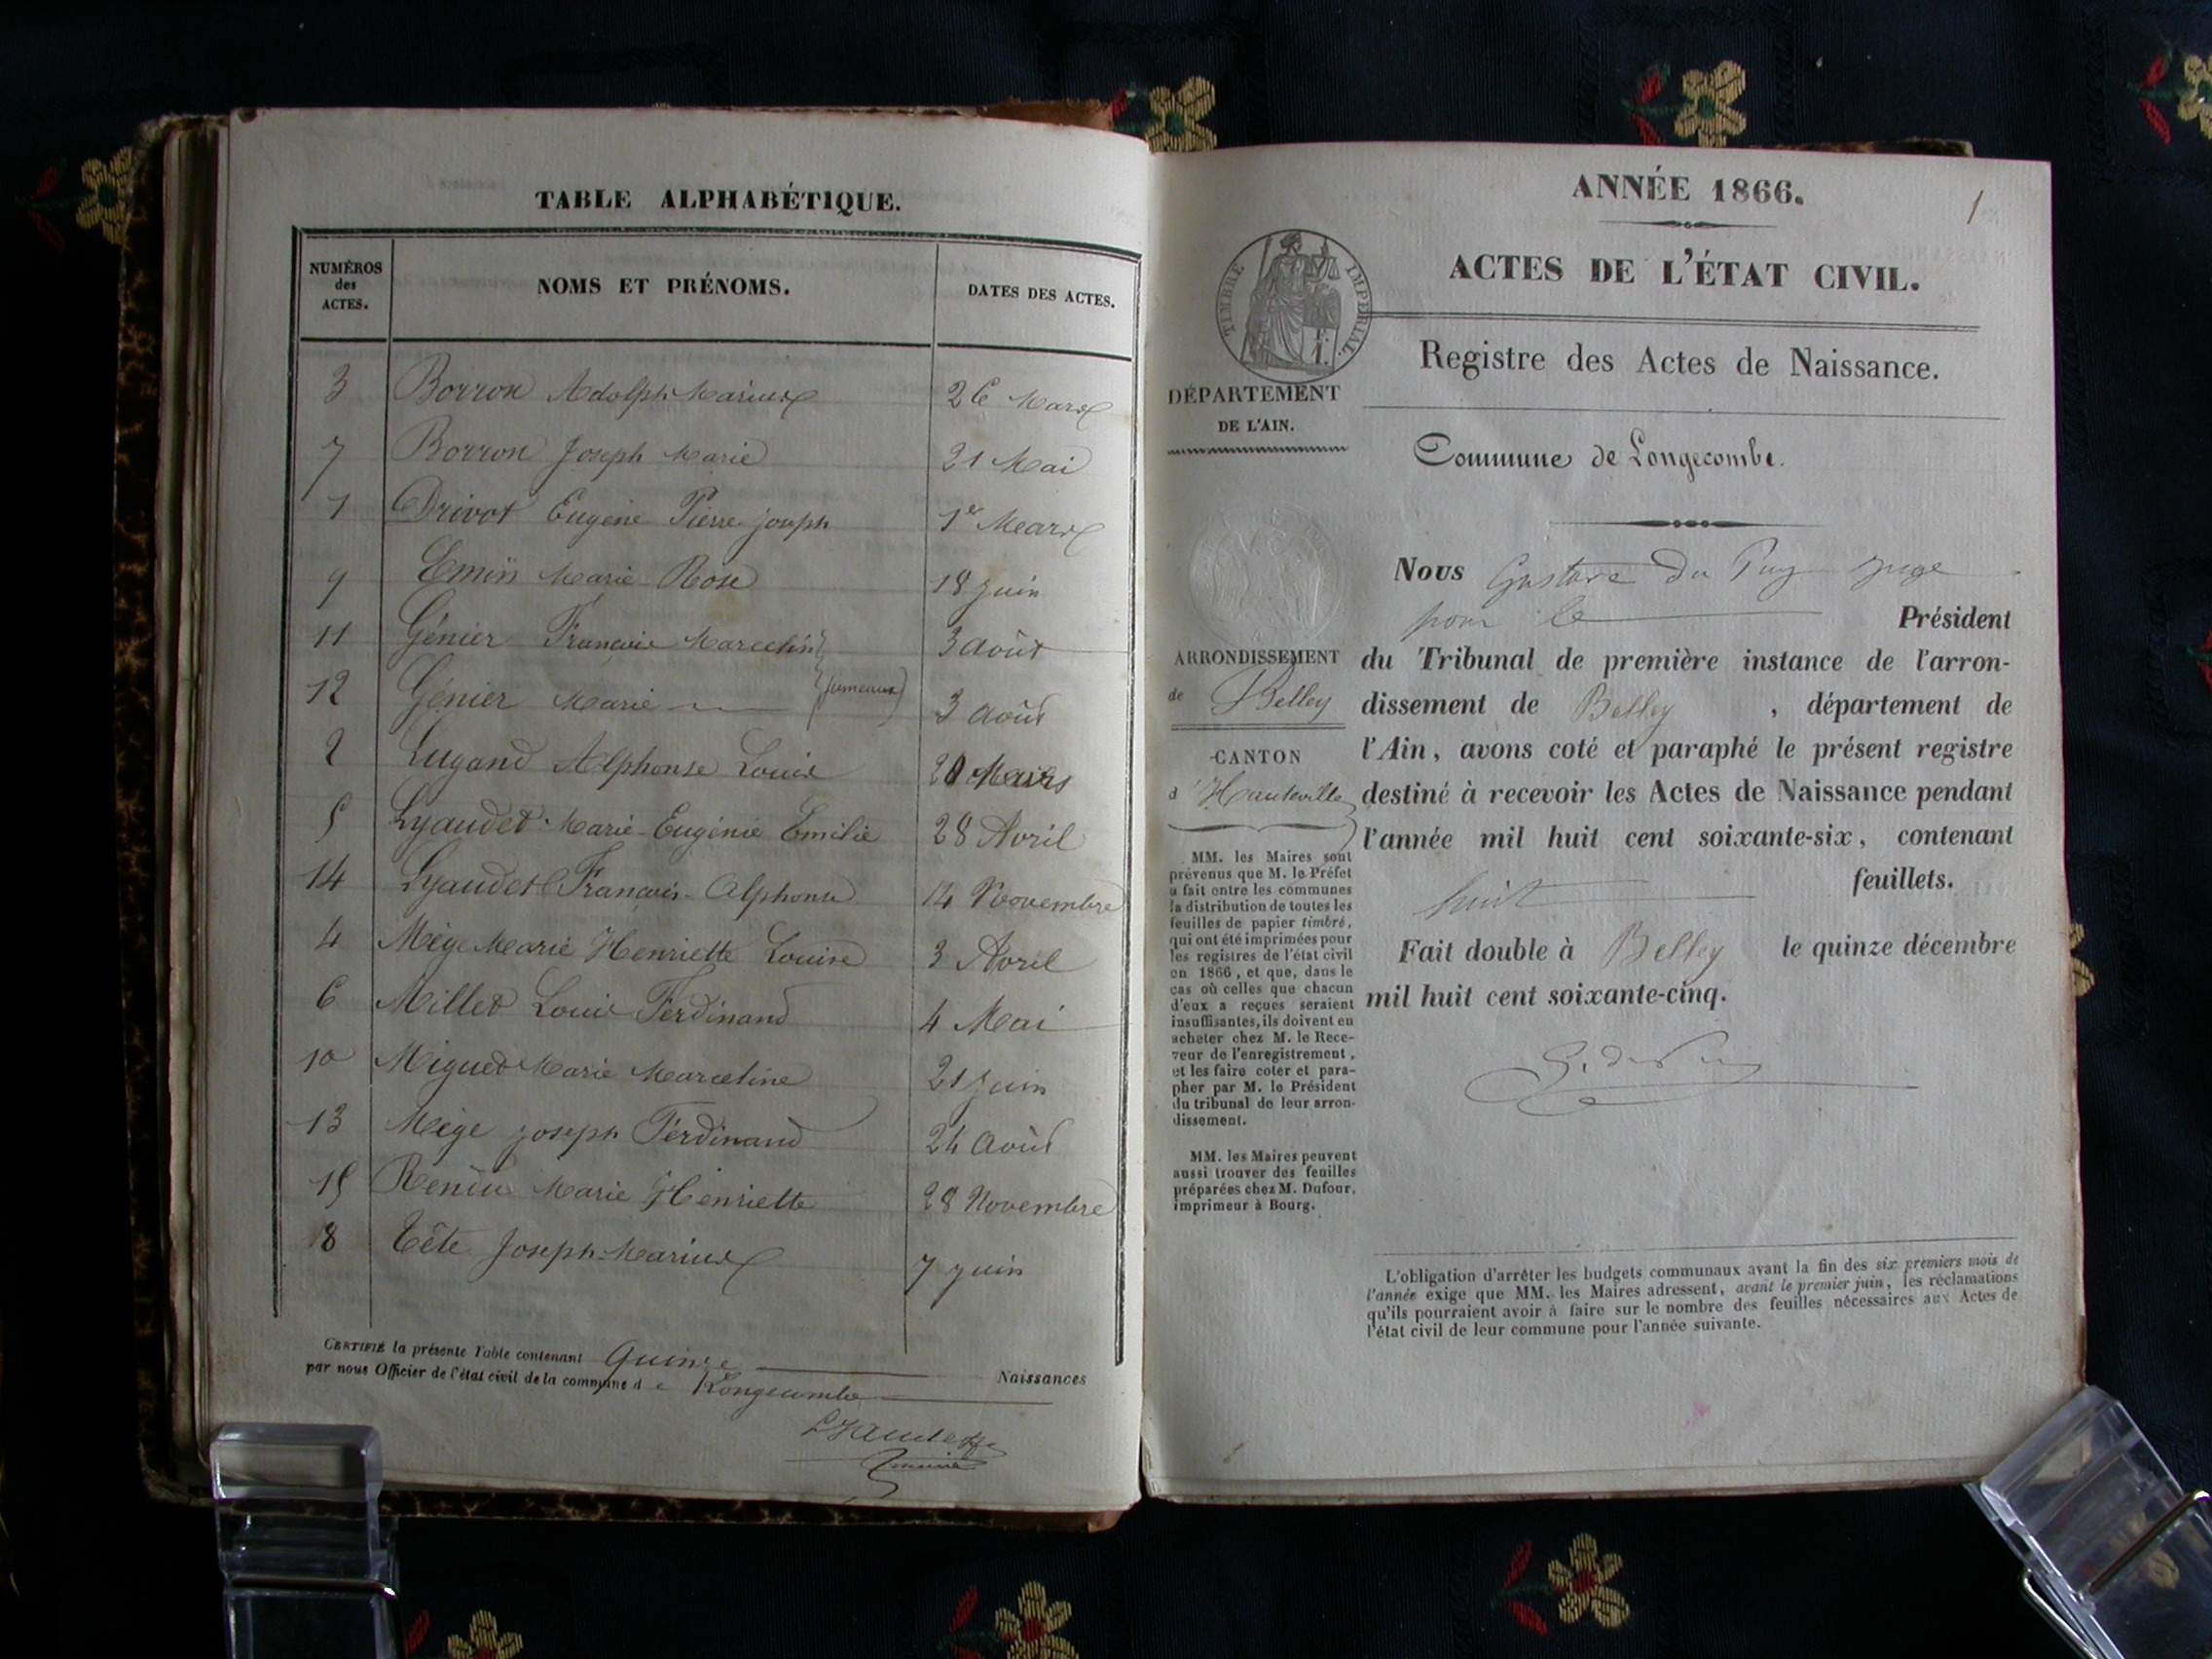 TABLE ALPHABÉTIQUE.
NUMÉROS
des
ACTES.
NOMS ET PRÉNOMS.
DATES DES ACTES.
3 Borron Adolphe Marius 26 Mars
7 Borron Joseph Marie 21 Mai
1 Drivot Eugène Pierre joseph 1er Mars
9 Emin Marie Rose 18 juin
11 Génier François Marcelin 3 août
12 Génier Marie (jumeaux) 3 août
2 Lugand Alphonse Louis 20 Mars
5 Lyaudet Marie Eugénie Emilie 28 Avril
14 Lyaudet François Alphonse 14 Novembre
4 Mège Marie Henriette Louise 3 Avril
6 Millet Louis Ferdinand 4 Mai
10 Miguet Marie Marceline 21 juin
13 Mège joseph Ferdinand 24 août
15 Rendu Marie Henriette 28 Novembre
8 Tête Joseph Marius 7 juin
CERTIFIÉ la présente Table contenant Quinze Naissances
par nous Officier de l'état civil de la commune de Longecombe
Lyaudet
maire
1
ANNÉE 1866.
ACTES DE L'ÉTAT CIVIL.
TIMBRE IMPÉRIAL.
Registre des Actes de Naissance.
DÉPARTEMENT
DE L'AIN.
Commune de Longecombe.
ARRONDISSEMENT
de Belley
CANTON
d'Hauteville
MM. les Maires sont
prévenus que M. le Préfet
a fait entre les communes
la distribution de toutes les
feuilles de papier timbré,
qui ont été imprimées pour
les registres de l'état civil
en 1866, et que, dans le
cas où celles que chacun
d'eux a reçues seraient
insuffisantes, ils doivent en
acheter chez M. le Rece-
veur de l'enregistrement,
et les faire coter et para-
pher par M. le Président
du tribunal de leur arron-
dissement.
MM. les Maires peuvent
aussi trouver des feuilles
préparées chez M. Dufour,
imprimeur à Bourg.
Nous Gustave Du Puy juge
pour le Président
du Tribunal de première instance de l'arron-
dissement de Belley, département de
l'Ain, avons coté et paraphé le présent registre
destiné à recevoir les Actes de Naissance pendant
l'année mil huit cent soixante-six, contenant
huit feuillets.
Fait double à Belley le quinze décembre
mil huit cent soixante-cinq.
G. du Puy
L'obligation d'arrêter les budgets communaux avant la fin des six premiers mois de
l'année exige que MM. les Maires adressent, avant le premier juin, les réclamations
qu'ils pourraient avoir à faire sur le nombre des feuilles nécessaires aux Actes de
l'état civil de leur commune pour l'année suivante.